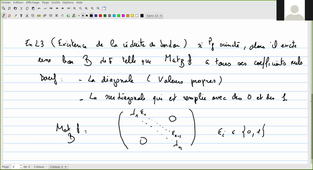 En L3 (Existence de la réduite de Jordan) si Pf scindé, alors il existe
une base B de E telle que Mat_B f a tous ses coefficients nuls
sauf : - La diagonale (Valeurs propres)
- La surdiagonale qui est remplie avec des 0 et des 1
Mat_B f = ( λ1 ε1 0 0 εn-1 λn ) εi ∈ {0,1}